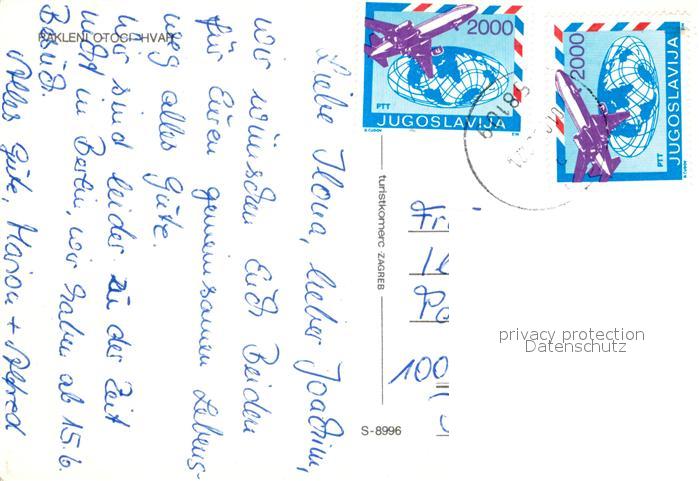 PAKLENI OTOCI HVAR
Liebe Ilona, lieber Joachim,
wir wünschen Euch Beiden
für Euren gemeinsamen Lebens-
weg alles Gute.
Wir sind leider zu der Zeit
nicht in Berlin, wir haben ab 15.6.
Besuch.
Alles Gute, Marion + Alfred
turistkomerc ZAGREB
S-8996
2000
PTT
JUGOSLAVIJA
2000
PTT
JUGOSLAVIJA
Fr
Il
100
privacy protection
Datenschutz